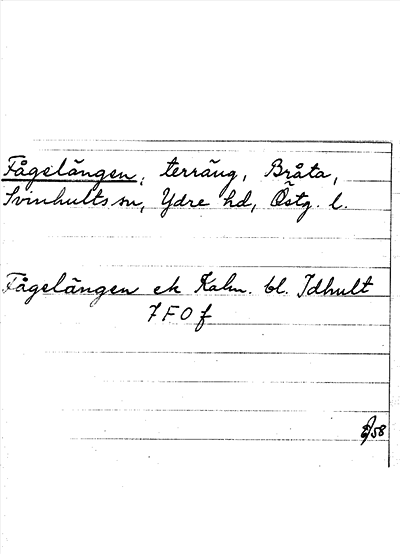 Fågelängen, terräng, Bråta,
Svinhults sn, Ydre hd, Östg. l.
Fågelängen ek Kalm. bl. Idhult
7F0f
/58